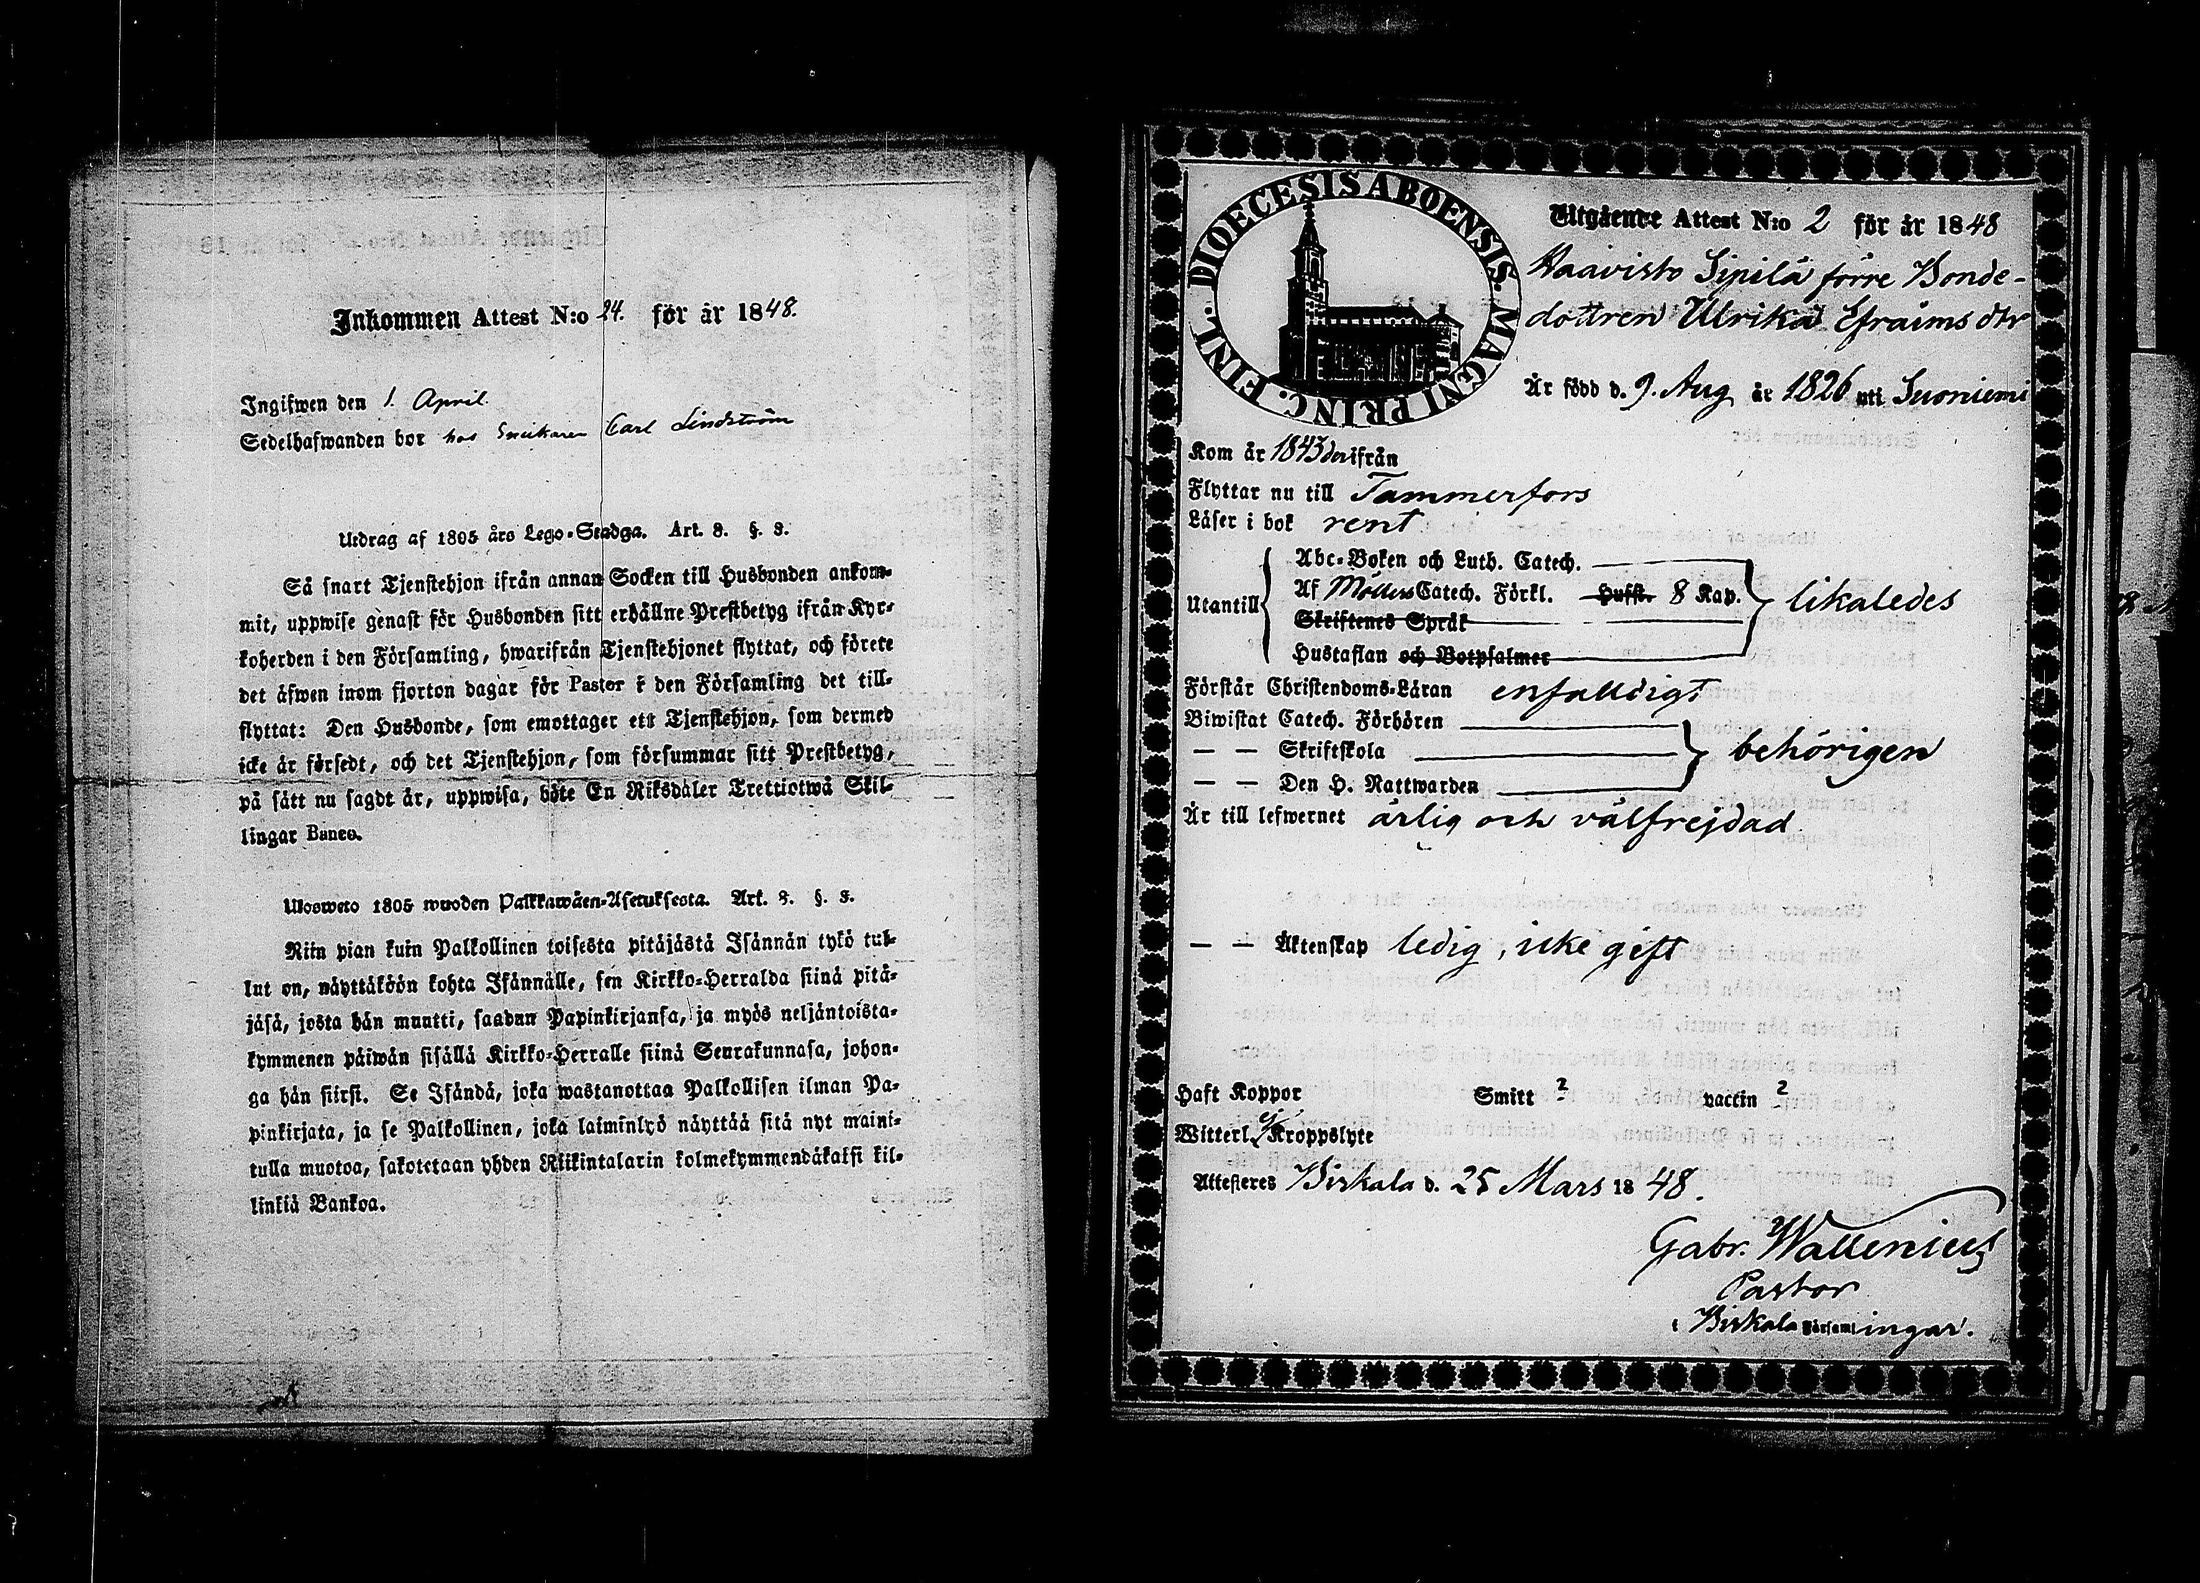 Inkommen Attest N:o 24. för år 1848.
Ingifwen den 1. April.
Sedelhafwanden bor hos Snickaren Carl Lindström
Utdrag af 1805 års Lego-Stadga. Art. 8. §. 3.
Så snart Tjenstehjon ifrån annan Socken till Husbonden ankom-
mit, uppwise genast för Husbonden sitt erhållne Prestbetyg ifrån Kyr-
koherden i den Församling, hwarifrån Tjenstehjonet flyttat, och förete
det äfwen inom fjorton dagar för Pastor i den Församling det till-
flyttat: Den Husbonde, som emottager ett Tjenstehjon, som dermed
icke är försedt, och det Tjenstehjon, som försummar sitt Prestbetyg,
på sätt nu sagdt är, uppwisa, böte En Riksdaler Trettiotwå Skil-
lingar Banco.
Ulosweto 1805 wuoden Palkkawäen-Asetuksesta. Art. 8. §. 3.
Niin pian kuin Palkollinen toisesta pitäjästä Isännän tykö tul-
lut on, näyttäköön kohta Isännälle, sen Kirkko-Herralda siinä pitä-
jäsä, josta hän muutti, saadun Papinkirjansa, ja myös neljäntoista-
kymmenen päiwän sisällä Kirkko-Herralle siinä Seurakunnasa, johon-
ga hän siirsi. Se Isändä, joka wastanottaa Palkollisen ilman Pa-
pinkirjata, ja se Palkollinen, joka laiminlyö näyttää sitä nyt maini-
tulla muotoa, sakotetaan yhden Riikintalarin kolmekymmendäkaksi kil-
linkiä Bankoa.
DIOECESIS ABOENSIS. MAGNI PRINC. FINL.
Utgående Attest N:o 2 för år 1848
Haavisto Sipilä förre Bonde-
dottren Ulrika Efraims dtr
Är född d. 9. Aug år 1826 uti Suoniemi
Kom år 1843 derifrån
Flyttar nu till Tammerfors
Läser i bok rent
Abc-Boken och Luth. Catech.
Utantill Af Möllers Catech. Förkl. Hufst. 8 Kap. likaledes
Skriftenes Språk
Hustaflan och Botpsalmer
Förstår Christendoms-Läran enfalldigt
Biwistat Catech. Förhören
— — Skriftskola behörigen
— — Den H. Nattwarden
Är till lefwernet ärlig och välfrejdad
— — Äktenskap ledig, icke gift
Haft Koppor Smitt ? vaccin ?
Witterl. ej Kroppslyte
Attesteres Birkala d. 25 Mars 1848.
Gabr. Wallenius
Pastor
i Birkala Församlingar.